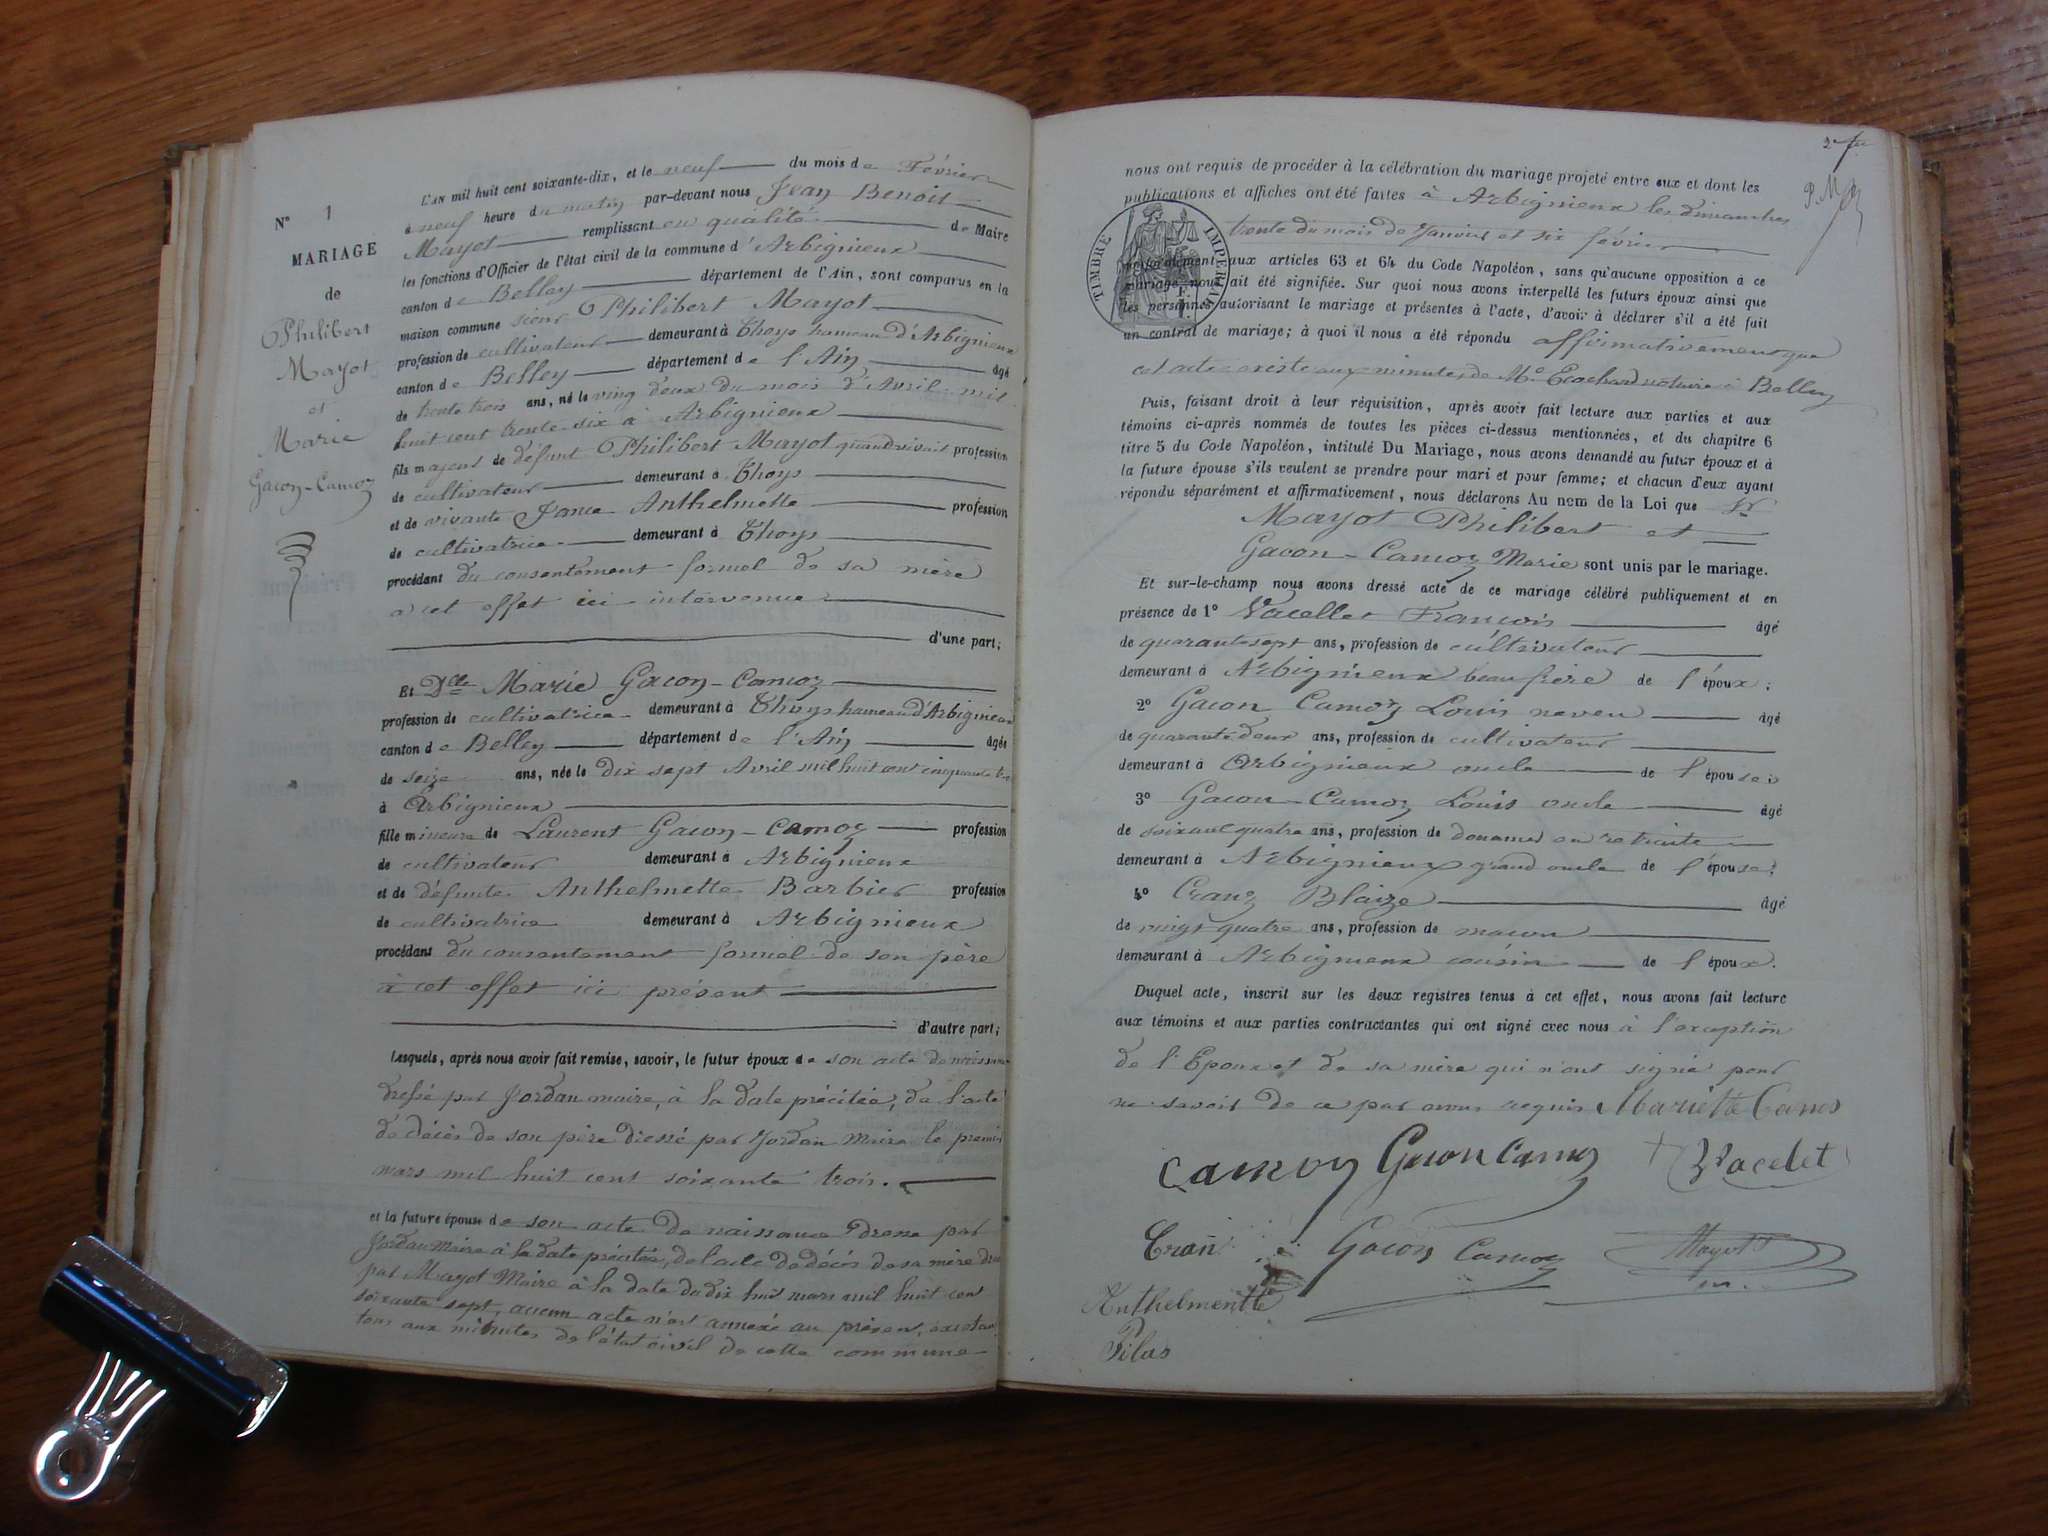 N° 1
MARIAGE
de
Philibert
Mayot
et
Marie
Gacon-Camoz
L'AN mil huit cent soixante-dix, et le neuf du mois de Février
à neuf heure du matin par-devant nous Jean Benoit
Mayot remplissant en qualité de Maire
les fonctions d'Officier de l'état civil de la commune d'Arbignieux
canton de Belley département de l'Ain, sont comparus en la
maison commune sieur Philibert Mayot
profession de cultivateur demeurant à Thoys hameau d'Arbignieux
canton de Belley département de l'Ain âgé
de trente trois ans, né le ving deux du mois d'Avril mil
huit cent trente six à Arbignieux
fils majeur de défunt Philibert Mayot quand vivait profession
de cultivateur demeurant à Thoys
et de vivante Jance Anthelmette profession
de cultivatrice demeurant à Thoys
procédant du consentement formel de sa mère
à cet effet ici intervenue
d'une part;
Et Dlle Marie Gacon-Camoz
profession de cultivatrice demeurant à Thoys hameau d'Arbignieux
canton de Belley département de l'Ain âgée
de seize ans, née le dix sept Avril mil huit cent cinquante tro
à Arbignieux
fille mineure de Laurent Gacon-Camoz profession
de cultivateur demeurant à Arbignieux
et de défunte Anthelmette Barbier profession
de cultivatrice demeurant à Arbignieux
procédant du consentement formel de son père
à cet effet ici présent
d'autre part;
Lesquels, après nous avoir fait remise, savoir, le futur époux de son acte de naissance
dressé par Jordan maire, à la date précitée, de l'acte
de décès de son père dressé par Jordan Maire le premier
mars mil huit cent soixante trois.
et la future épouse de son acte de naissance dressé par
Jordan Maire à la date précitée, de l'acte de décès de sa mère dre
par Mayot Maire à la date du dix huit mars mil huit cent
soixante sept, aucun acte n'est annexé au présent, existan
tous aux minutes de l'état civil de cette commune
2e
nous ont requis de procéder à la célébration du mariage projeté entre eux et dont les
publications et affiches ont été faites à Arbignieux les dimanches
trente du mois de Janvier et six février
TIMBRE IMPERIAL
conformément aux articles 63 et 64 du Code Napoléon, sans qu'aucune opposition à ce
mariage nous ait été signifiée. Sur quoi nous avons interpellé les futurs époux ainsi que
les personnes autorisant le mariage et présentes à l'acte, d'avoir à déclarer s'il a été fait
un contrat de mariage; à quoi il nous a été répondu affirmativement que
cet acte existe aux minutes de Me Ecochard notaire à Belley
Puis, faisant droit à leur réquisition, après avoir fait lecture aux parties et aux
témoins ci-après nommés de toutes les pièces ci-dessus mentionnées, et du chapitre 6
titre 5 du Code Napoléon, intitulé Du Mariage, nous avons demandé au futur époux et à
la future épouse s'ils veulent se prendre pour mari et pour femme; et chacun d'eux ayant
répondu séparément et affirmativement, nous déclarons Au nom de la Loi que Sr
Mayot Philibert et
Gacon-Camoz Marie sont unis par le mariage.
Et sur-le-champ nous avons dressé acte de ce mariage célébré publiquement et en
présence de 1° Vacellet François âgé
de quarante sept ans, profession de cultivateur
demeurant à Arbignieux beau frère de l'époux;
2° Gacon Camoz Louis neveu âgé
de quarante deux ans, profession de cultivateur
demeurant à Arbignieux oncle de l'épouse;
3° Gacon-Camoz Louis oncle âgé
de soixant quatre ans, profession de douanier en retraite
demeurant à Arbignieux grand oncle de l'épouse;
4° Cranz Blaize âgé
de vingt quatre ans, profession de maçon
demeurant à Arbignieux cousin de l'époux.
Duquel acte, inscrit sur les deux registres tenus à cet effet, nous avons fait lecture
aux témoins et aux parties contractantes qui ont signé avec nous à l'exception
de l'Epoux et de sa mère qui n'ont signé pour
ne savoir de ce par nous requis Mariette Camos
Camoz Gacon Camoz Vacelet
Cran Gacon Camoz Mayot
m.
Anthelmentte
Pilas